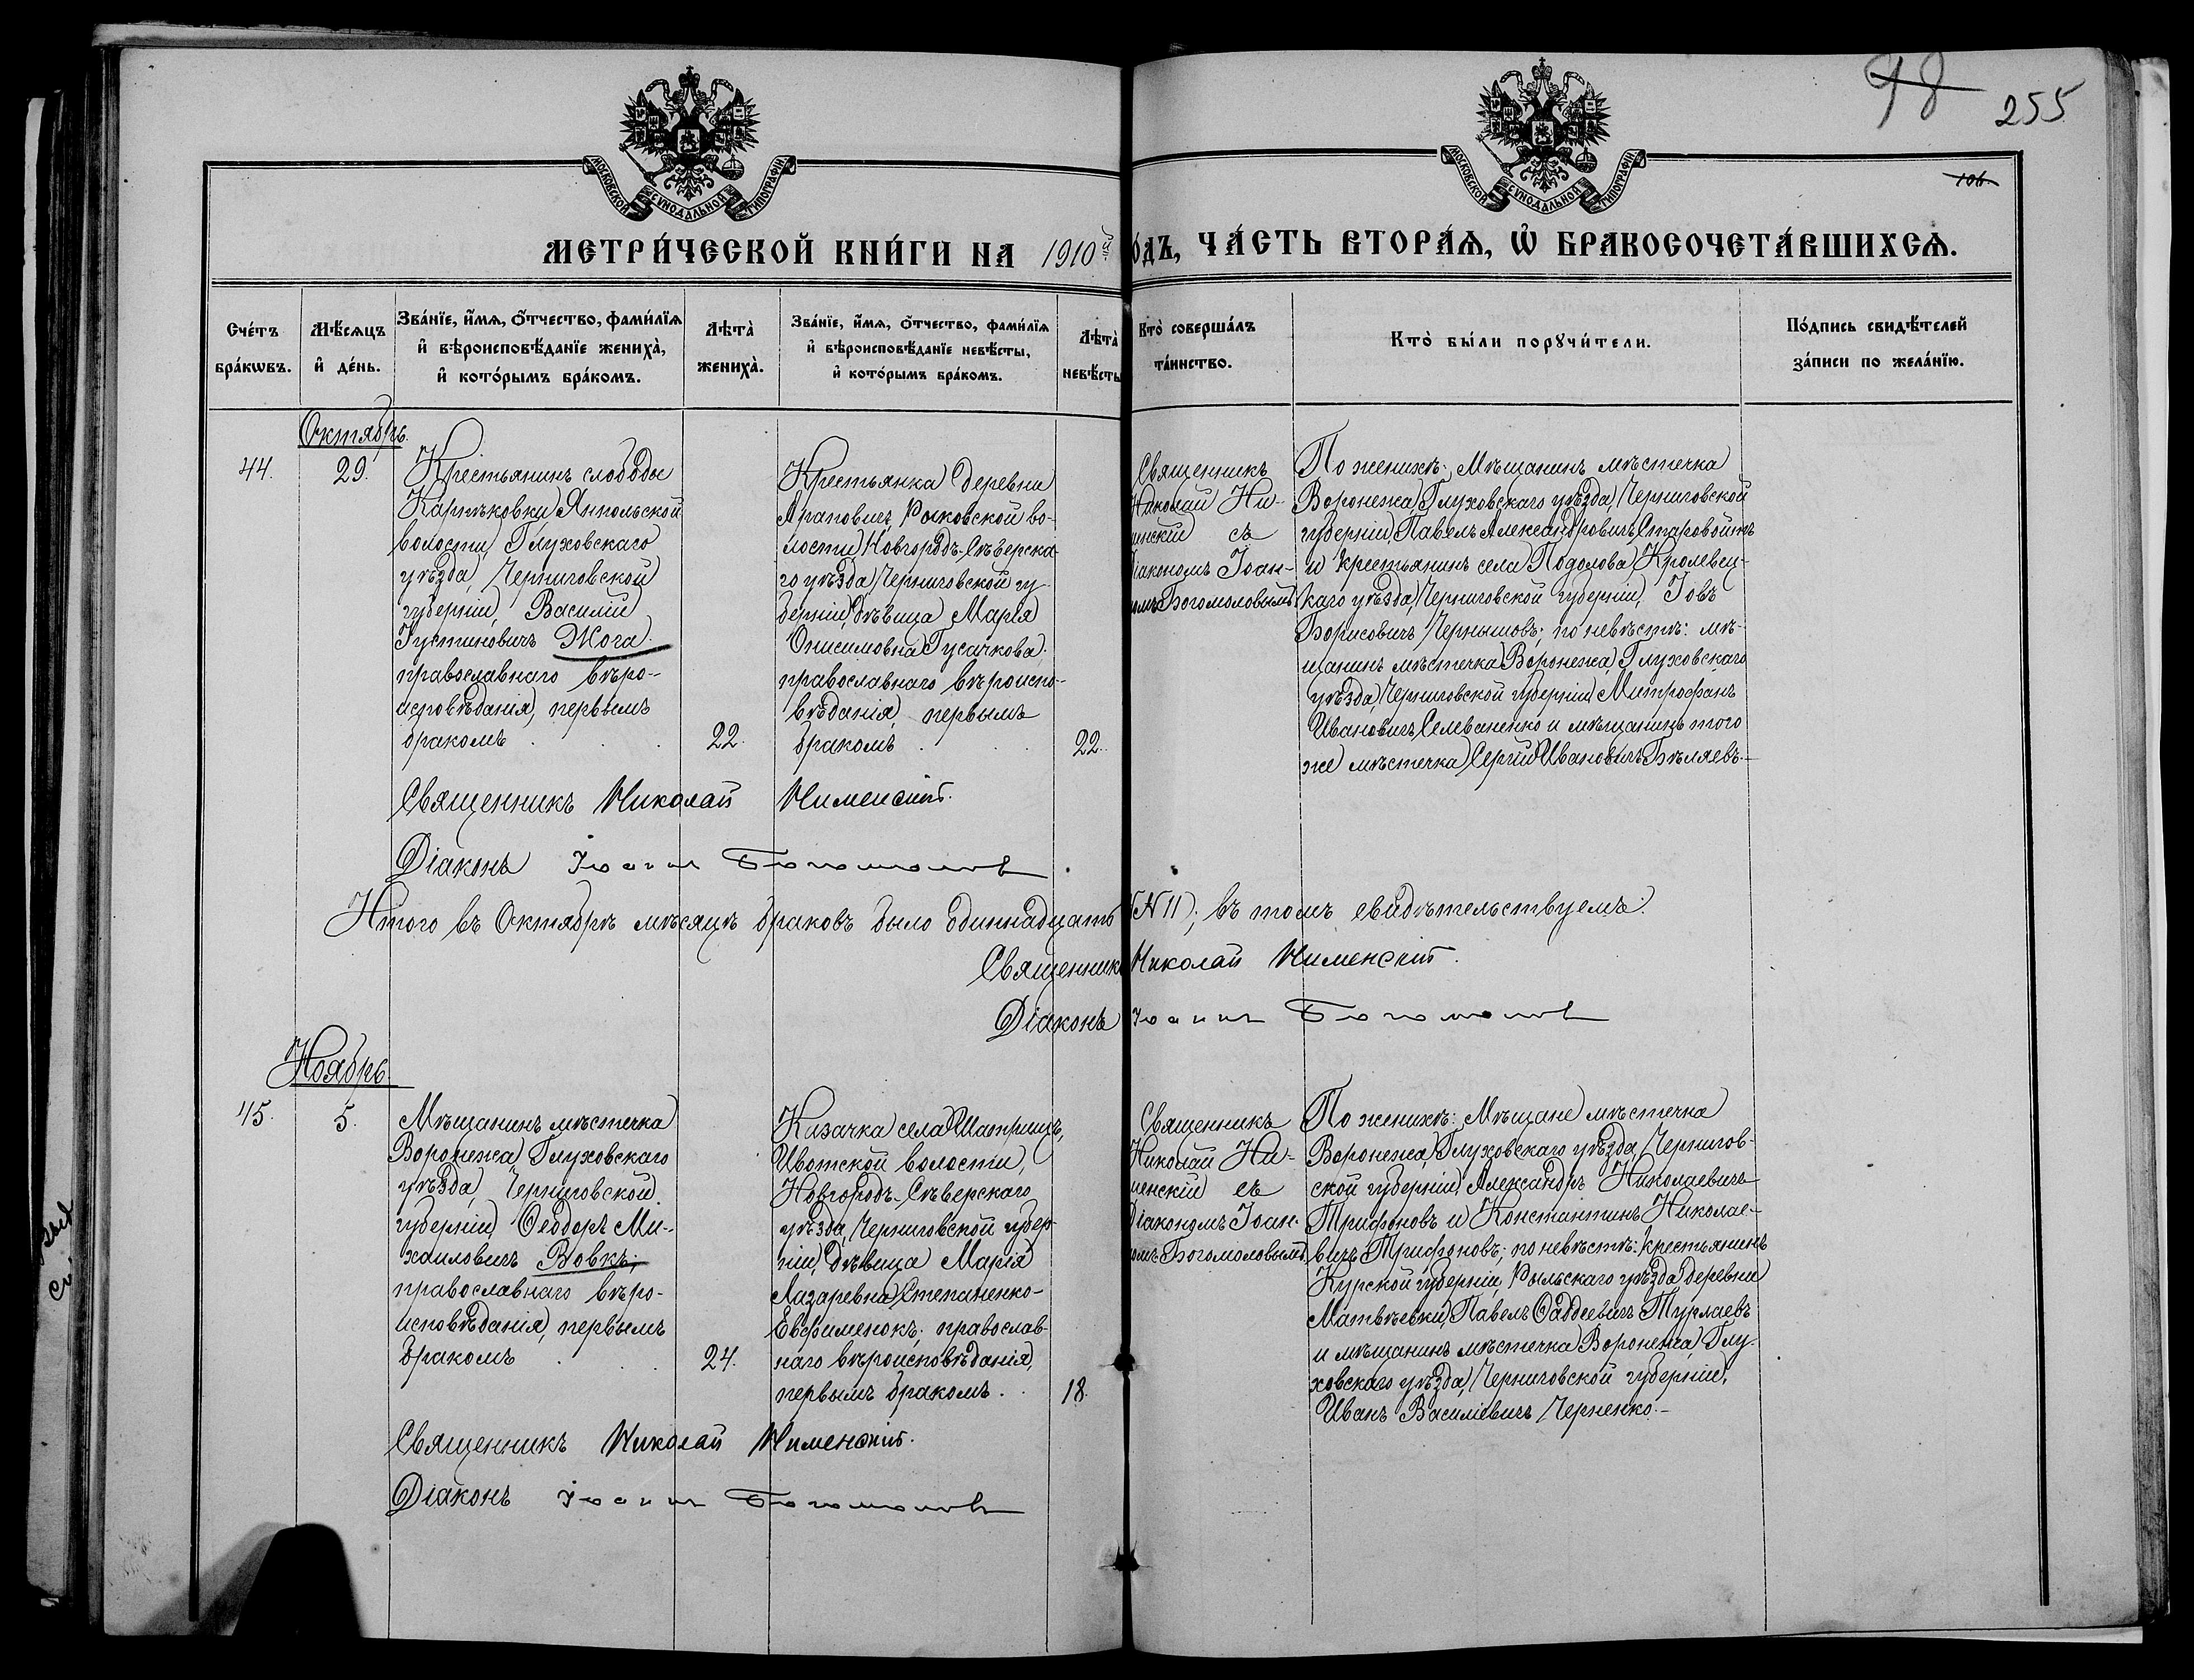 98
255
106.
МОСКОВСКОЙ СѴНОДАЛЬНОЙ ТИПОГРАФІИ
МОСКОВСКОЙ СѴНОДАЛЬНОЙ ТИПОГРАФІИ
МЕТРИ́ЧЕСКОЙ КНИ́ГИ НА 1910й
О́ДЪ, ЧА́СТЬ ВТОРА́Ѧ, Ѡ҆ БРАКОСОЧЕТА́ВШИХСѦ.
Сче́тъ
бра́кѡвъ.
Мѣ́сяцъ
и҆ де́нь.
Зва́нїе, и҆́мѧ, ѻ҆́тчество, фами́лїѧ
и҆ вѣроисповѣ́данїе жениха̀,
и҆ кото́рымъ бра́комъ.
Лѣта̀
жениха̀.
Зва́нїе, и҆́мѧ, ѻ҆́тчество, фами́лїѧ
и҆ вѣроисповѣ́данїе невѣ́сты,
и҆ кото́рымъ бра́комъ.
Лѣта̀
невѣ́сты
Кто̀ соверша́лъ
та́инство.
Кто̀ бы́ли порꙋчи́тели.
По́дпись свидѣ́телей
за́писи по жела́нїю.
Октябрь.
44.
29.
Крестьянинъ слободы
Карпѣковки Янпольской
волости, Глуховскаго
уѣзда, Черниговской
губерніи, Василій
Іустиновичъ Жога.
православнаго вѣро-
исповѣданія, первымъ
бракомъ . . .
22.
Крестьянка деревни
Араповичъ, Рыковской во-
лости Новгородъ-Сѣверска-
го уѣзда Черниговской гу-
берніи, дѣвица Марія
Онисимовна Гусачкова.
православнаго вѣроиспо-
вѣданія, первымъ
бракомъ . . .
22.
Священникъ
Николай Ни-
менскій съ
Діакономъ Іоан-
номъ Богомоловымъ.
По женихѣ: Мѣщанинъ мѣстечка
Воронежа Глуховскаго уѣзда, Черниговской
губерніи, Павелъ Александровичъ Старовойтъ
и крестьянинъ села Подолова Кролевец-
каго уѣзда, Черниговской губерніи, Іовъ
Борисовичъ Чернышовъ; по невѣстѣ: мѣ-
щанинъ мѣстечка Воронежа, Глуховскаго
уѣзда, Черниговской губерніи Митрофанъ
Ивановичъ Селеваненко и мѣщанинъ того
же мѣстечка Сергій Ивановичъ Бѣляевъ.-
Священникъ Николай Нименскій.
Діаконъ Іоаннъ Богомоловъ
Итого въ Октябрѣ мѣсяцѣ браковъ было одиннадцать (№ 11); въ томъ свидѣтельствуемъ:
Священникъ Николай Нименскій.
Діаконъ Іоаннъ Богомоловъ
Ноябрь.
45.
5.
Мѣщанинъ мѣстечка
Воронежа Глуховскаго
уѣзда, Черниговской
губерніи, Ѳеодоръ Ми-
хаиловичъ Вовкъ;
православнаго вѣро-
исповѣданія, первымъ
бракомъ . . .
24.
Казачка села Шатрищъ,
Ивотской волости,
Новгородъ-Сѣверскаго
уѣзда, Черниговской губер-
ніи, дѣвица Марія
Лазаревна Степаненко-
Евфименокъ; православ-
наго вѣроисповѣданія,
первымъ бракомъ. .
18.
Священникъ
Николай Ни-
менскій съ
Діакономъ Іоан-
номъ Богомоловымъ.
По женихѣ: Мѣщане мѣстечка
Воронежа, Глуховскаго уѣзда, Чернигов-
ской губерніи, Александръ Николаевичъ
Трифоновъ и Константинъ Николае-
вичъ Трифоновъ; по невѣстѣ: крестьянинъ
Курской губерніи, Рыльскаго уѣзда деревни
Матвѣевки, Павелъ Ѳаддеевичъ Турлаевъ
и мѣщанинъ мѣстечка Воронежа, Глу-
ховскаго уѣзда, Черниговской губерніи,
Иванъ Василіевичъ Черненко.-
Священникъ Николай Нименскій.
Діаконъ Іоаннъ Богомоловъ